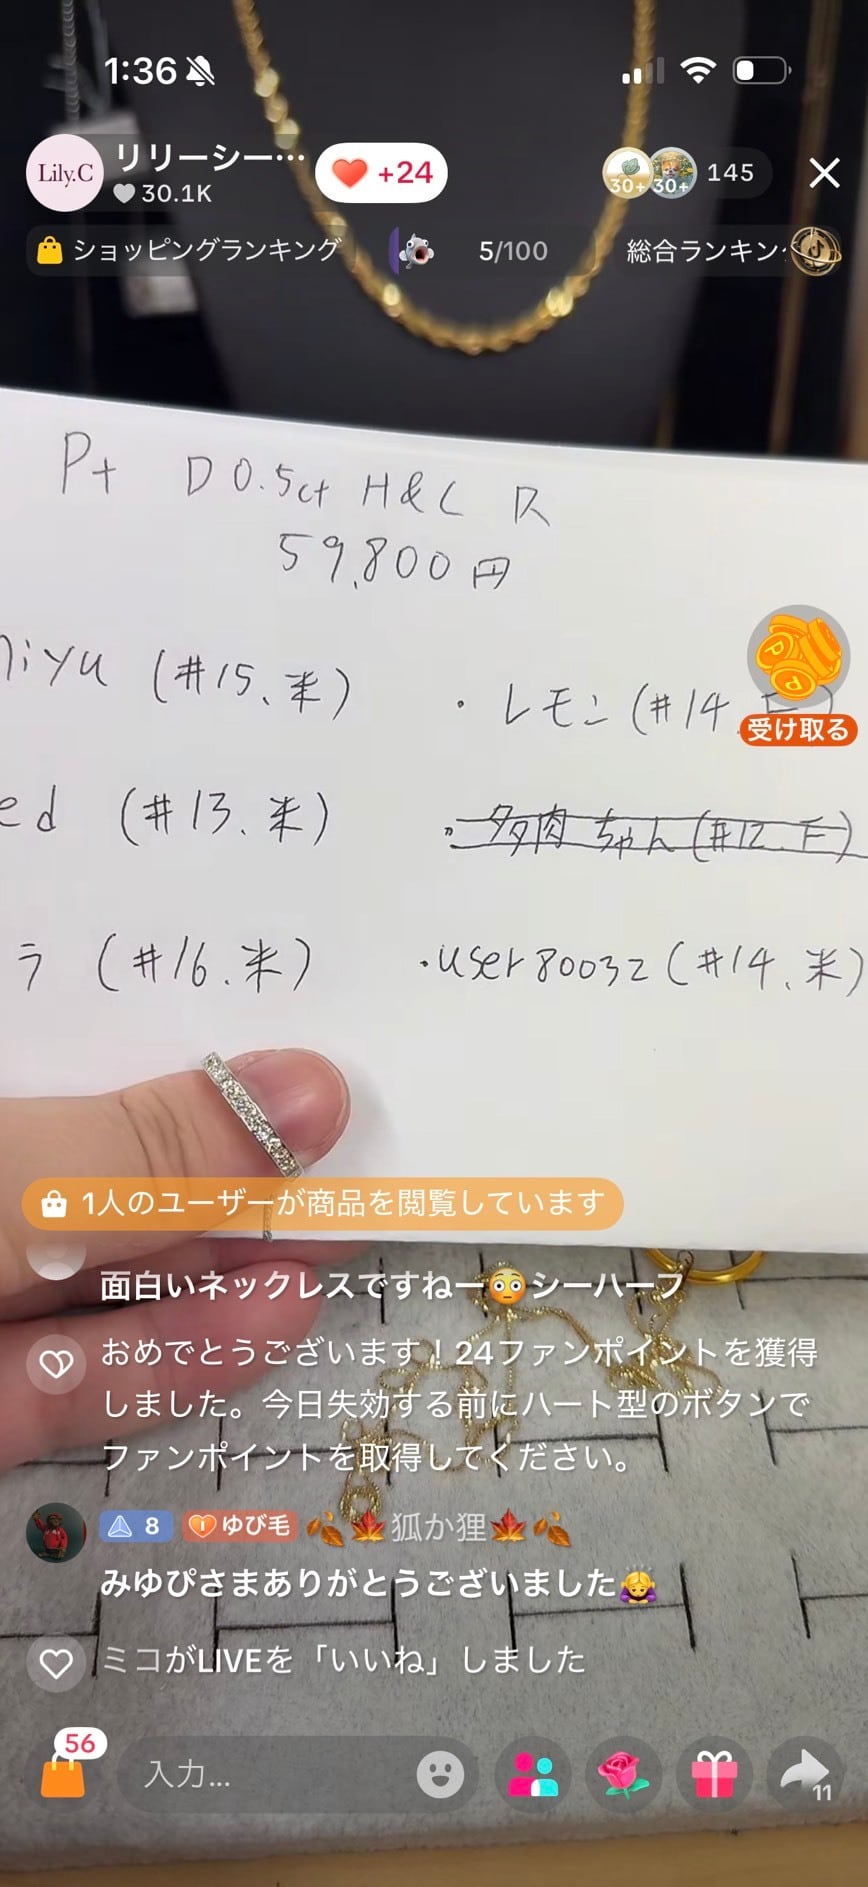 1:36
Lily.C
リリーシー…
30.1K
+24
30+
30+
145
ショッピングランキング
5/100
総合ランキン
Pt D0.5ct H&C R
59,800円
miyu (#15、米)
・レモン(#14、F)
受け取る
ed (#13、米)
・多肉ちゃん(#12、F)
ラ (#16、米)
・user80032(#14、米)
1人のユーザーが商品を閲覧しています
面白いネックレスですねー😳シーハーフ
おめでとうございます！24ファンポイントを獲得
しました。今日失効する前にハート型のボタンで
ファンポイントを取得してください。
8 I ゆび毛 🍂🍁狐か狸🍁🍂
みゆぴさまありがとうございました🙇‍♀️
ミコがLIVEを「いいね」しました
56
入力...
11